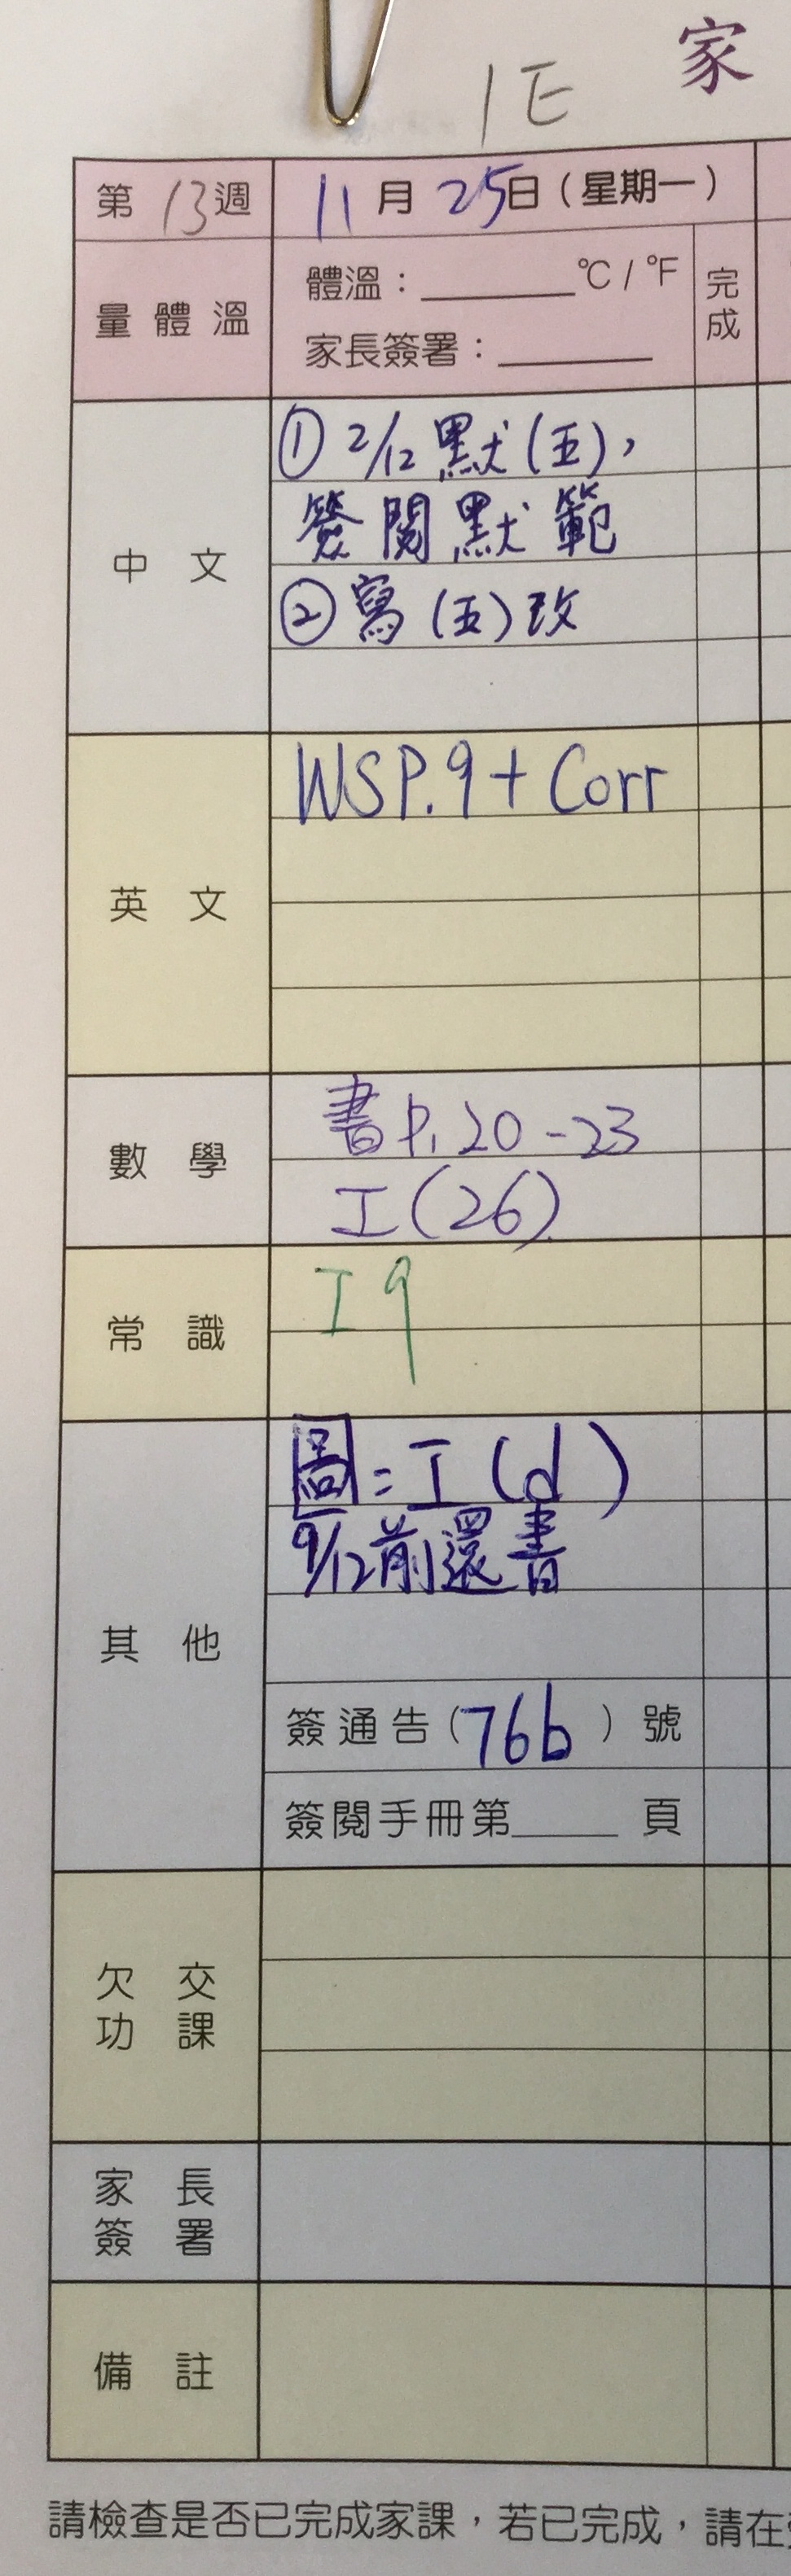 家
1E
第13週
11月25日(星期一)
量體溫
體溫：______℃/℉
家長簽署：______
完成
中文
① 2/12 默(五),
簽閱默範
② 寫(五)改
英文
WSP.9 + Corr
數學
書P.20-23
工(26)
常識
工9
其他
圖=工(d)
9/12前還書
簽通告(76b)號
簽閱手冊第____頁
欠交功課
家長簽署
備註
請檢查是否已完成家課，若已完成，請在